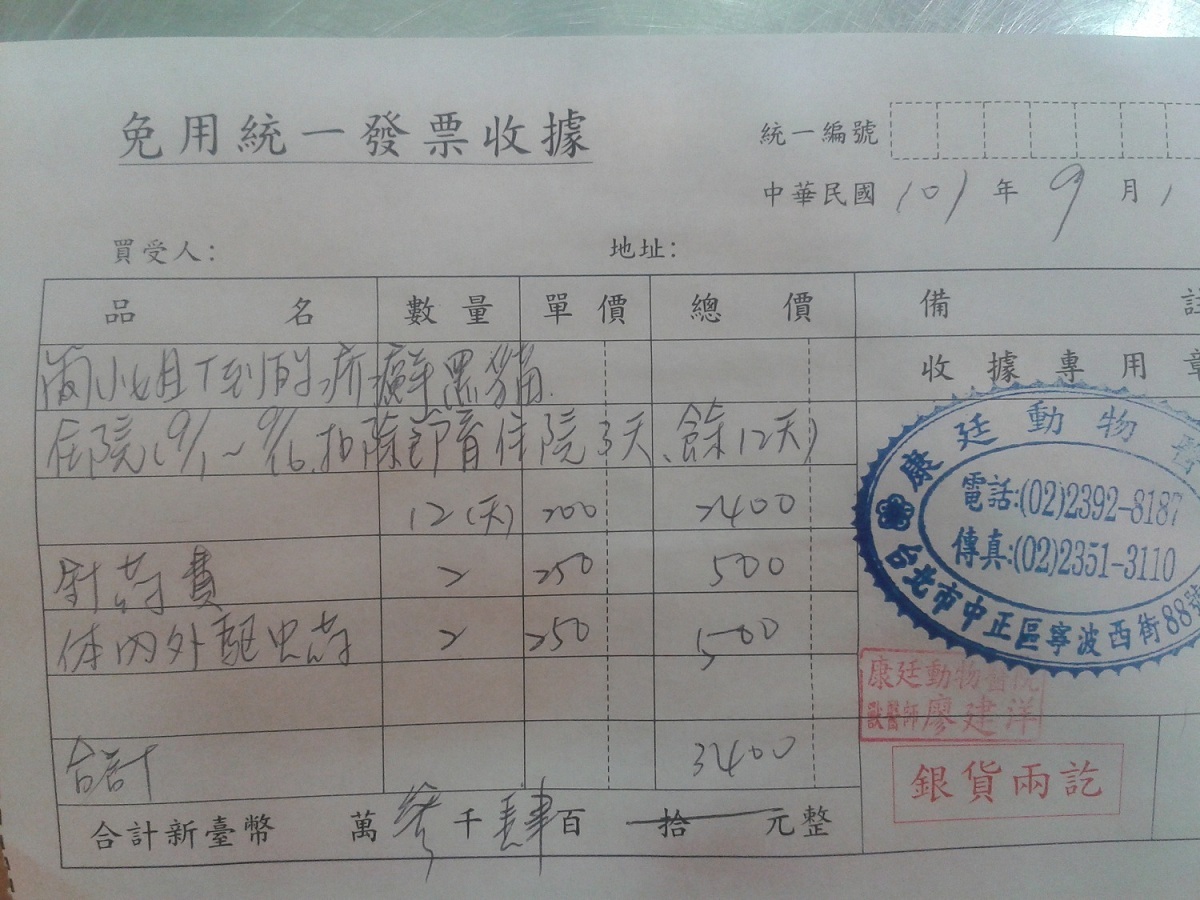 免用統一發票收據
統一編號
中華民國 101 年 9 月 1
買受人：
地址：
品名 數量 單價 總價 備註
收據專用章
小姐 的 癬黑貓.
住院(9/1~9/16.扣除節育住院3天、餘12天)
12(天) 200 2400
針葯費 2 250 500
体內外驅虫葯 2 250 500
合計 3400
合計新臺幣 萬參千肆百拾元整
康廷動物醫
電話:(02)2392-8187
傳真:(02)2351-3110
台北市中正區寧波西街88號
康廷動物醫院
獸醫師廖建洋
銀貨兩訖